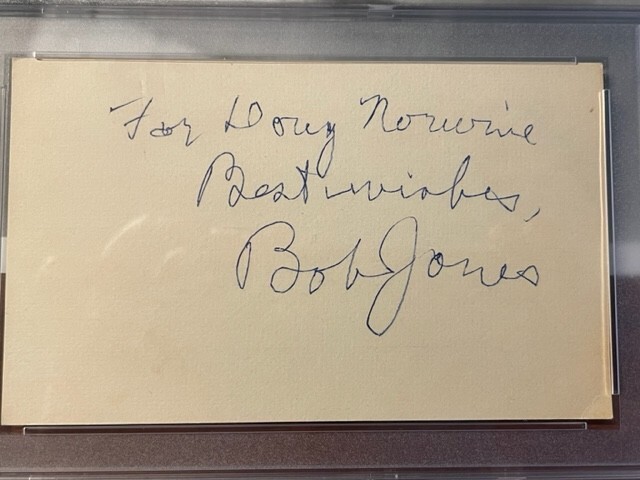 For Doug Norwine
Best wishes,
Bob Jones